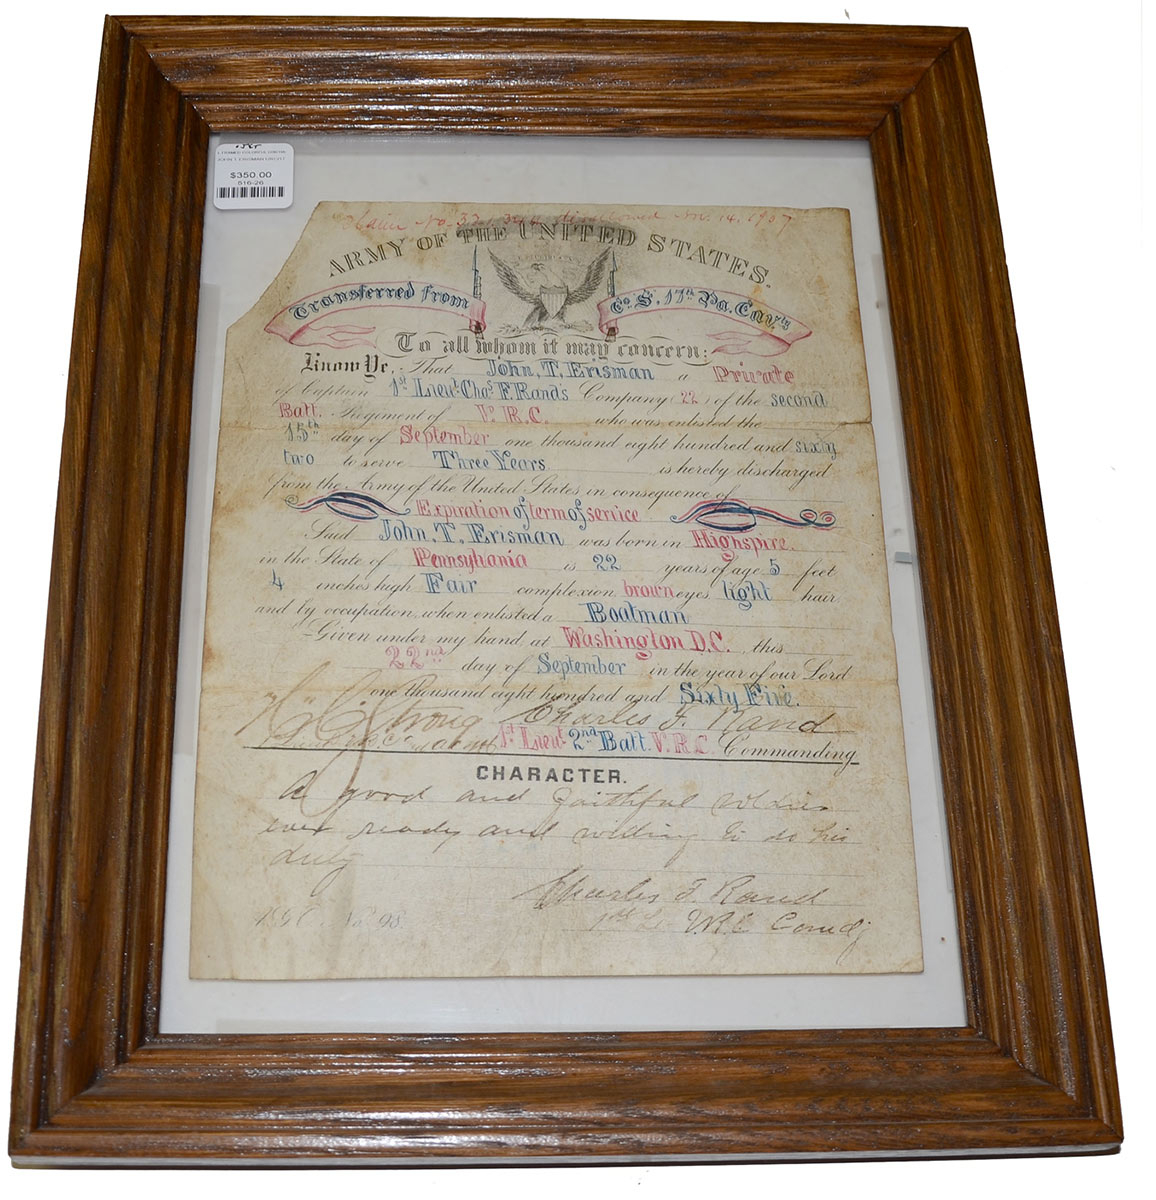 JOHN T ERISMAN
$350.00
516-26
Claim No. disallowed Nov. 14, 1907
ARMY OF THE UNITED STATES.
Transferred from
Co S. 17th Pa. Cavly
To all whom it may concern:
Know Ye, That John, T. Erisman a Private
of Captain 1st Lieut. Chas F. Rand's Company (22) of the second
Batt. Regiment of V. R. C. who was enlisted the
15th day of September one thousand eight hundred and sixty
two to serve Three Years is hereby discharged
from the Army of the United States in consequence of
Expiration of term of service
Said John T. Erisman was born in Highspire.
in the State of Pennsylvania is 22 years of age 5 feet
4 inches high Fair complexion brown eyes light hair
and by occupation, when enlisted a Boatman
Given under my hand, at Washington D.C. this
22nd day of September in the year of our Lord
one thousand eight hundred and Sixty Five.
Strong Charles F. Rand
1st Lieut 2nd Batt. V. R. C. Commanding
CHARACTER.
A good and faithful soldier
ever ready and willing to do his
duty
Charles F. Rand
1st Lt VRC Comdg